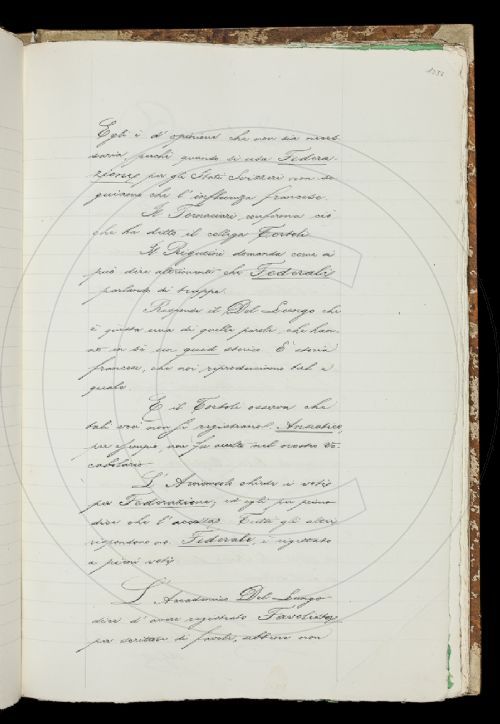 1051
Egli è d'opinione che non sia neces-
saria, perchè quando si usa Federa-
zione, per gli Stati Svizzeri non se-
guiamo che l'influenza francese.
Il Tornacuari, conferma ciò
che ha detto il collega Tortoli.
Il Rigutini domanda come si
può dire altrimenti che Federali
parlando di truppe.
Risponde il Del Lungo che
è questa una di quelle parole, che han-
no in sè un quid storico. È storia
francese, che noi riproduciamo tal e
quale.
E il Tortoli osserva che
tali voci non si registrano.
per esempio, non fu accolta nel nostro Vo-
cabolario.
L' chiede i voti
per Federazione, ed egli per primo
dice che l'accetta. Tutti gli altri
rispondono no. Federale, è rigettato
a pieni voti.
L'Accademico Del Lungo
dice d'aver registrato Favolista
per scrittore di favole, sebbene non